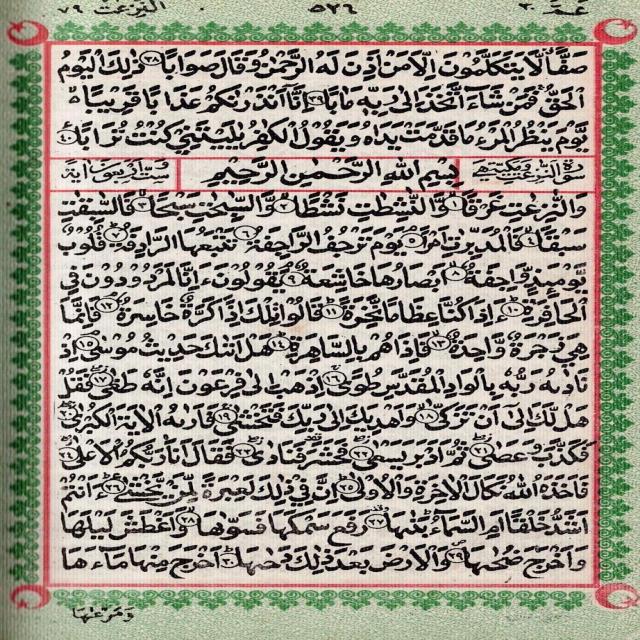 عَمَّ ٣٠ ٥٢٦ النّٰزِعٰت ٧٩
صَفًّا لَّا يَتَكَلَّمُوْنَ اِلَّا مَنْ اَذِنَ لَهُ الرَّحْمٰنُ وَقَالَ صَوَابًا ﴿٣٨﴾ ذٰلِكَ الْيَوْمُ
الْحَقُّ فَمَنْ شَآءَ اتَّخَذَ اِلٰى رَبِّهٖ مَاٰبًا ﴿٣٩﴾ اِنَّآ اَنْذَرْنٰكُمْ عَذَابًا قَرِيْبًا
يَّوْمَ يَنْظُرُ الْمَرْءُ مَا قَدَّمَتْ يَدٰهُ وَيَقُوْلُ الْكٰفِرُ يٰلَيْتَنِيْ كُنْتُ تُرٰبًا ﴿٤٠﴾
سُوْرَةُ النّٰزِعٰتِ مَكِّيَّةٌ بِسْمِ اللهِ الرَّحْمٰنِ الرَّحِيْمِ سِتٌّ وَّاَرْبَعُوْنَ اٰيَةً
وَالنّٰزِعٰتِ غَرْقًا ﴿١﴾ وَّالنّٰشِطٰتِ نَشْطًا ﴿٢﴾ وَّالسّٰبِحٰتِ سَبْحًا ﴿٣﴾ فَالسّٰبِقٰتِ
سَبْقًا ﴿٤﴾ فَالْمُدَبِّرٰتِ اَمْرًا ﴿٥﴾ يَوْمَ تَرْجُفُ الرَّاجِفَةُ ﴿٦﴾ تَتْبَعُهَا الرَّادِفَةُ ﴿٧﴾ قُلُوْبٌ
يَّوْمَئِذٍ وَّاجِفَةٌ ﴿٨﴾ اَبْصَارُهَا خَاشِعَةٌ ﴿٩﴾ يَقُوْلُوْنَ ءَاِنَّا لَمَرْدُوْدُوْنَ فِي
الْحَافِرَةِ ﴿١٠﴾ ءَاِذَا كُنَّا عِظَامًا نَّخِرَةً ﴿١١﴾ قَالُوْا تِلْكَ اِذًا كَرَّةٌ خَاسِرَةٌ ﴿١٢﴾ فَاِنَّمَا
هِيَ زَجْرَةٌ وَّاحِدَةٌ ﴿١٣﴾ فَاِذَا هُمْ بِالسَّاهِرَةِ ﴿١٤﴾ هَلْ اَتٰىكَ حَدِيْثُ مُوْسٰى ﴿١٥﴾ اِذْ
نَادٰىهُ رَبُّهٗ بِالْوَادِ الْمُقَدَّسِ طُوًى ﴿١٦﴾ اِذْهَبْ اِلٰى فِرْعَوْنَ اِنَّهٗ طَغٰى ﴿١٧﴾ فَقُلْ
هَلْ لَّكَ اِلٰٓى اَنْ تَزَكّٰى ﴿١٨﴾ وَاَهْدِيَكَ اِلٰى رَبِّكَ فَتَخْشٰى ﴿١٩﴾ فَاَرٰىهُ الْاٰيَةَ الْكُبْرٰى ﴿٢٠﴾
فَكَذَّبَ وَعَصٰى ﴿٢١﴾ ثُمَّ اَدْبَرَ يَسْعٰى ﴿٢٢﴾ فَحَشَرَ فَنَادٰى ﴿٢٣﴾ فَقَالَ اَنَا رَبُّكُمُ الْاَعْلٰى ﴿٢٤﴾
فَاَخَذَهُ اللهُ نَكَالَ الْاٰخِرَةِ وَالْاُوْلٰى ﴿٢٥﴾ اِنَّ فِيْ ذٰلِكَ لَعِبْرَةً لِّمَنْ يَّخْشٰى ﴿٢٦﴾ ءَاَنْتُمْ
اَشَدُّ خَلْقًا اَمِ السَّمَآءُ بَنٰىهَا ﴿٢٧﴾ رَفَعَ سَمْكَهَا فَسَوّٰىهَا ﴿٢٨﴾ وَاَغْطَشَ لَيْلَهَا
وَاَخْرَجَ ضُحٰىهَا ﴿٢٩﴾ وَالْاَرْضَ بَعْدَ ذٰلِكَ دَحٰىهَا ﴿٣٠﴾ اَخْرَجَ مِنْهَا مَآءَهَا
وَمَرْعٰىهَا